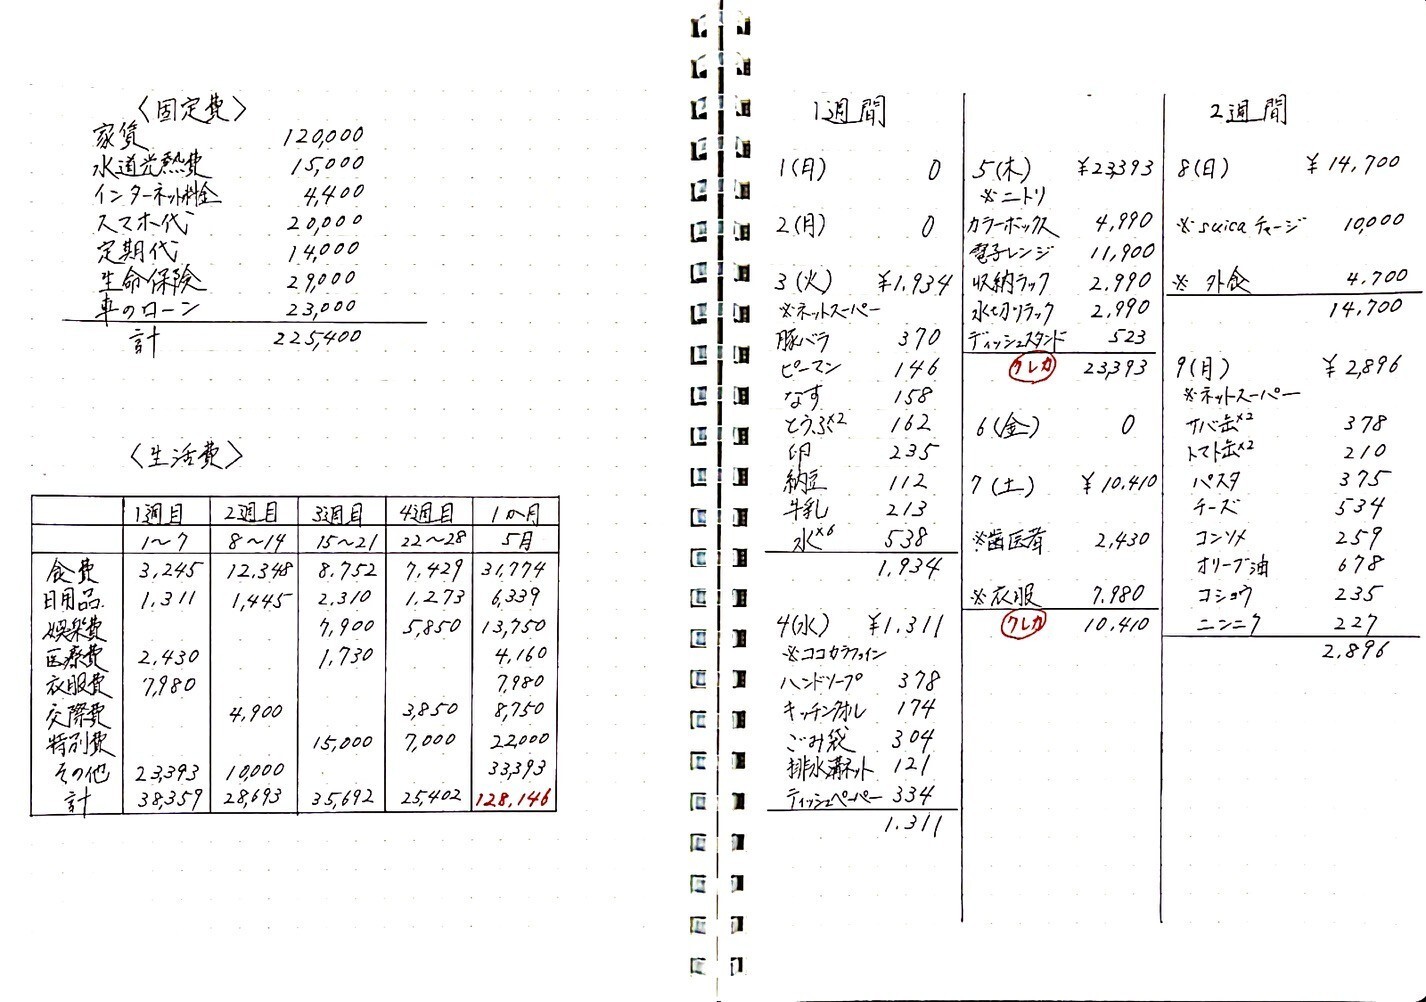 〈固定費〉
家賃 120,000
水道光熱費 15,000
インターネット料金 4,400
スマホ代 20,000
定期代 14,000
生命保険 29,000
車のローン 23,000
計 225,400
〈生活費〉
1週目 2週目 3週目 4週目 1か月
1~7 8~14 15~21 22~28 5月
食費 3,245 12,348 8,752 7,429 31,774
日用品 1,311 1,445 2,310 1,273 6,339
娯楽費 7,900 5,850 13,750
医療費 2,430 1,730 4,160
衣服費 7,980 7,980
交際費 4,900 3,850 8,750
特別費 15,000 7,000 22,000
その他 23,393 10,000 33,393
計 38,359 28,693 35,692 25,402 128,146
1週間
1(月) 0
2(月) 0
3(火) ¥1,934
※ネットスーパー
豚バラ 370
ピーマン 146
なす 158
とうふ×2 162
卵 235
納豆 112
牛乳 213
水×6 538
1,934
4(水) ¥1,311
※ココカラファイン
ハンドソープ 378
キッチンタオル 174
ごみ袋 304
排水溝ネット 121
ティッシュペーパー 334
1,311
5(木) ¥23,393
※ニトリ
カラーボックス 4,990
電子レンジ 11,900
収納ラック 2,990
水切りラック 2,990
ディッシュスタンド 523
クレカ 23,393
6(金) 0
7(土) ¥10,410
※歯医者 2,430
※衣服 7,980
クレカ 10,410
2週間
8(日) ¥14,700
※suicaチャージ 10,000
※外食 4,700
14,700
9(月) ¥2,896
※ネットスーパー
サバ缶×2 378
トマト缶×2 210
パスタ 375
チーズ 534
コンソメ 259
オリーブ油 678
コショウ 235
ニンニク 227
2,896